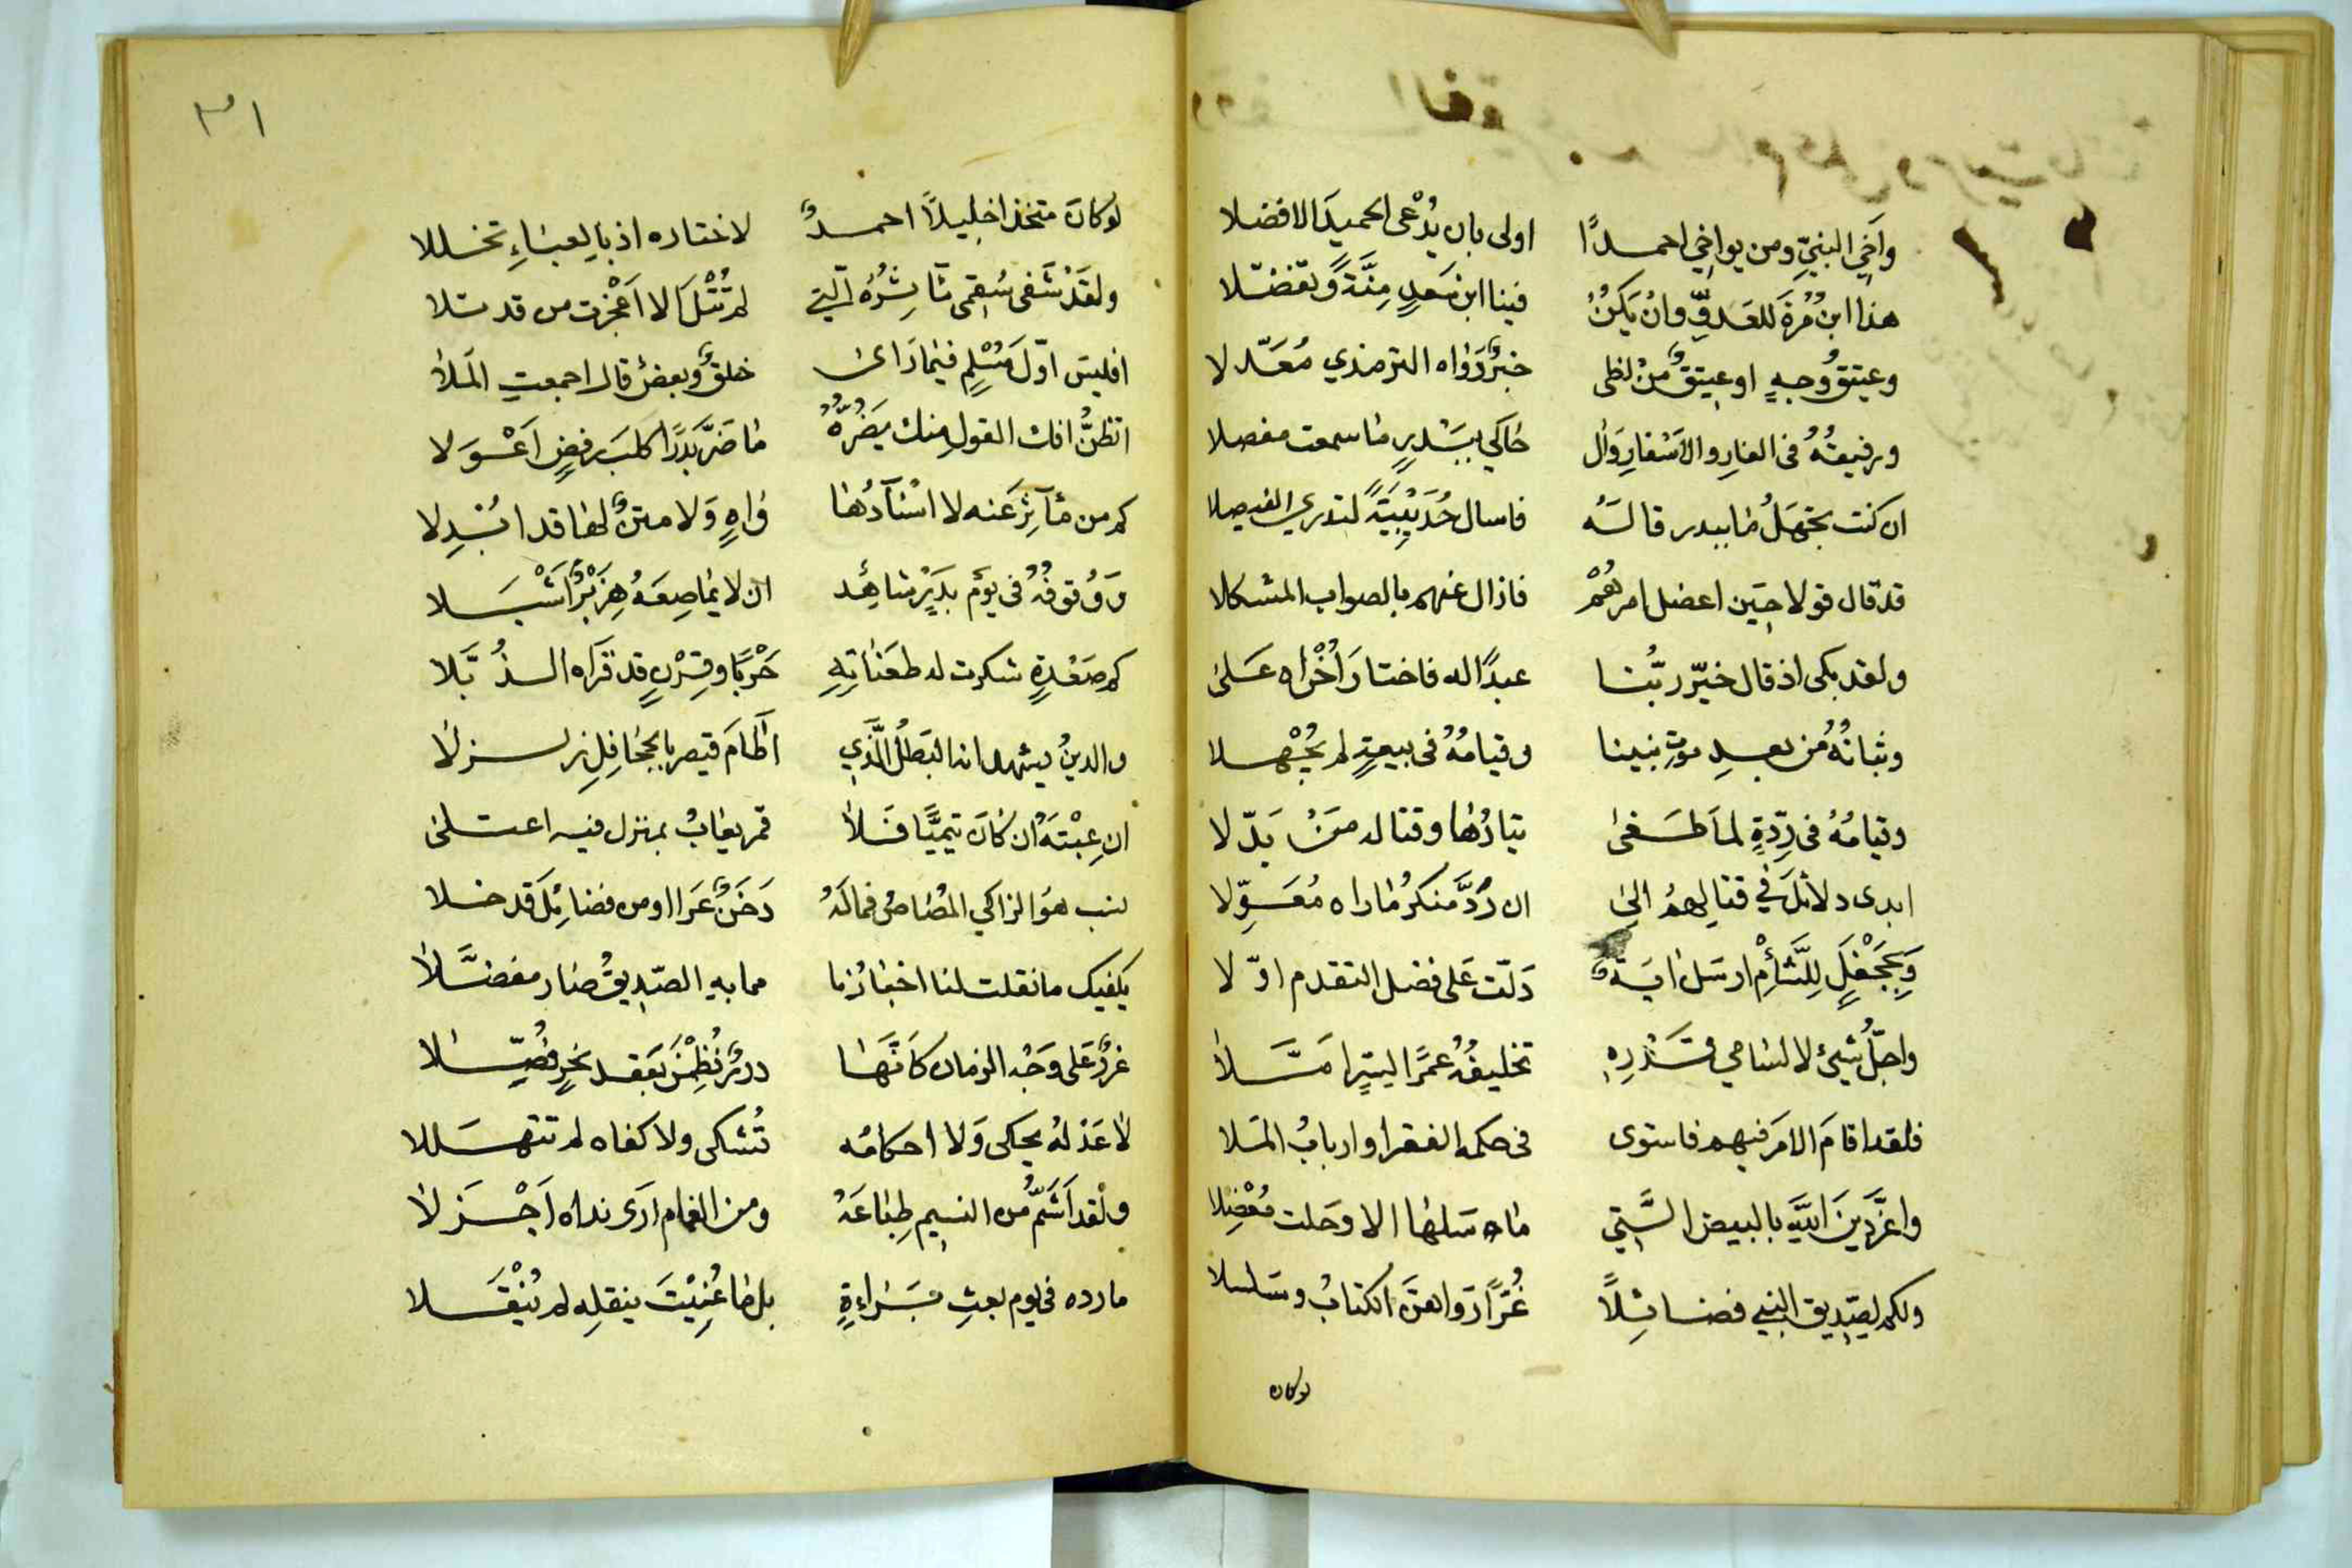 وآخي النبيِّ ومن يواخي احمدًا اولى بان يُدْعى الحميدَ الافضلا
هذا ابنُ مُرَّةَ للعَدوِّ وانْ يَكنْ فينا ابن سَعدٍ مِنَّةً وتفضّلا
وعتيقُ وجهٍ او عتيقٌ منْ لظى خبرٌ رَوَاه الترمذي مُعَدّلا
ورفيقُهُ فى الغارِ والاسْفارِ وال حاكي ببَدْرٍ ما سمعت مفصلا
ان كنت تجهَلُ ما ببدر قالَهُ فاسال حُدَيْبِيَةً لتدري الفيصلا
قد قال قولا حين اعضل امرهُمْ فازال عنهم بالصواب المشكلا
ولقد بكى اذ قال خيّر ربُّنا عبدًا له فاختارَ اُخْراه عَلىٰ
وثباتُهُ من بعدِ موتِ نبينا وقيامُهُ فى بيعةٍ لم يُجْهلا
وقيامُهُ فى رِدّةٍ لما طَغىٰ تيارُها وقتاله مَنْ بَدّلا
ابدى دلائلَ في قتالِهمُ الىٰ ان رُدَّ منكرُ ما راه مُعَوِّلا
وَبِجَحْفَلٍ لِلشَّأْمِ ارسَل ايَةً دَلّت عَلى فضل التقدم اوّلا
واجلُّ شيئ لا لسامي قَدْرِهِ تخليفُهُ عمرًا
فلقد اقامَ الامرَ فيهم فاستوى فى حكمه الفقرا واربابُ المَلا
واعزَّ دينَ اللهِ بالبيض الَّتي ما سَلها الا وحَلت مُعْضِلا
ولكم لصِدّيق النبي فضائِلًا غُرًّا رَواهنَّ الكتابُ وسَلسلا
لوكان
٣١
لو كانَ متخذا خليلاً احمدٌ لاختاره اذ بالعبَاءِ تخللا
ولقَدْ شَفى سُقمى مآثِرُهُ الّتي لم تُتْلَ الا اَعْجزت من قد تلا
افليسَ اوّلَ مُسْلمٍ فيما رَاىٰ خلقٌ وبعضٌ قال اجمعتِ المَلا
اتظنُّ افك القولِ منك يَضُرُّهُ ما ضَرَّ بَدرًا كلبَ رفضٍ اَعْوَلا
كم من مآثِرَ عَنه لا اسْنَادُها وَاهٍ وَلا متنٌ لها قد اُبْدِلا
وَوُقوفُهُ فى يَومِ بدرٍ شاهِدٌ ان لا يُماصِعَهُ هِزَبْرٌ اَشْبَلا
كم صَعْدةٍ شكرت له طعَناتِهِ حَرْبًا وقِرْنٍ قد قَرَاه الذُبَّلا
والدينُ يشهد انه البَطلُ الَّذي اَطامَ قيصر بالجحَافِلِ زلزلا
ان عِبْتَهُ ان كانَ تيميًّا فَلا قمر يعَابُ بمنزل فيه اعتلىٰ
نسب هوَ الزاكي المُصَاص فمالَهُ دَخَنٌ عَرَا او من فضائِلَ قد خلا
يكفيك ما نقلت لنا اخبَارُنا مما بهِ الصّديقُ صَار مفضَّلا
غررٌ عَلى وَجْهِ الزمان كاَنَّهَا دررٌ نُظِمْنَ بَعقد نحرٍ فُصِّلا
لا عَذلهُ يحكى وَلا احكامُه تُشكى ولا كفاه لم تتهلَّلا
ولقد اَشمُّ من النسيم طِبَاعَهُ ومن الغمام ارَى نداه اَجْزَلا
ما رده في يوم بعثِ بَراءةٍ بل ما عُنِيْتَ بنقلِه لم يُنْقَلا